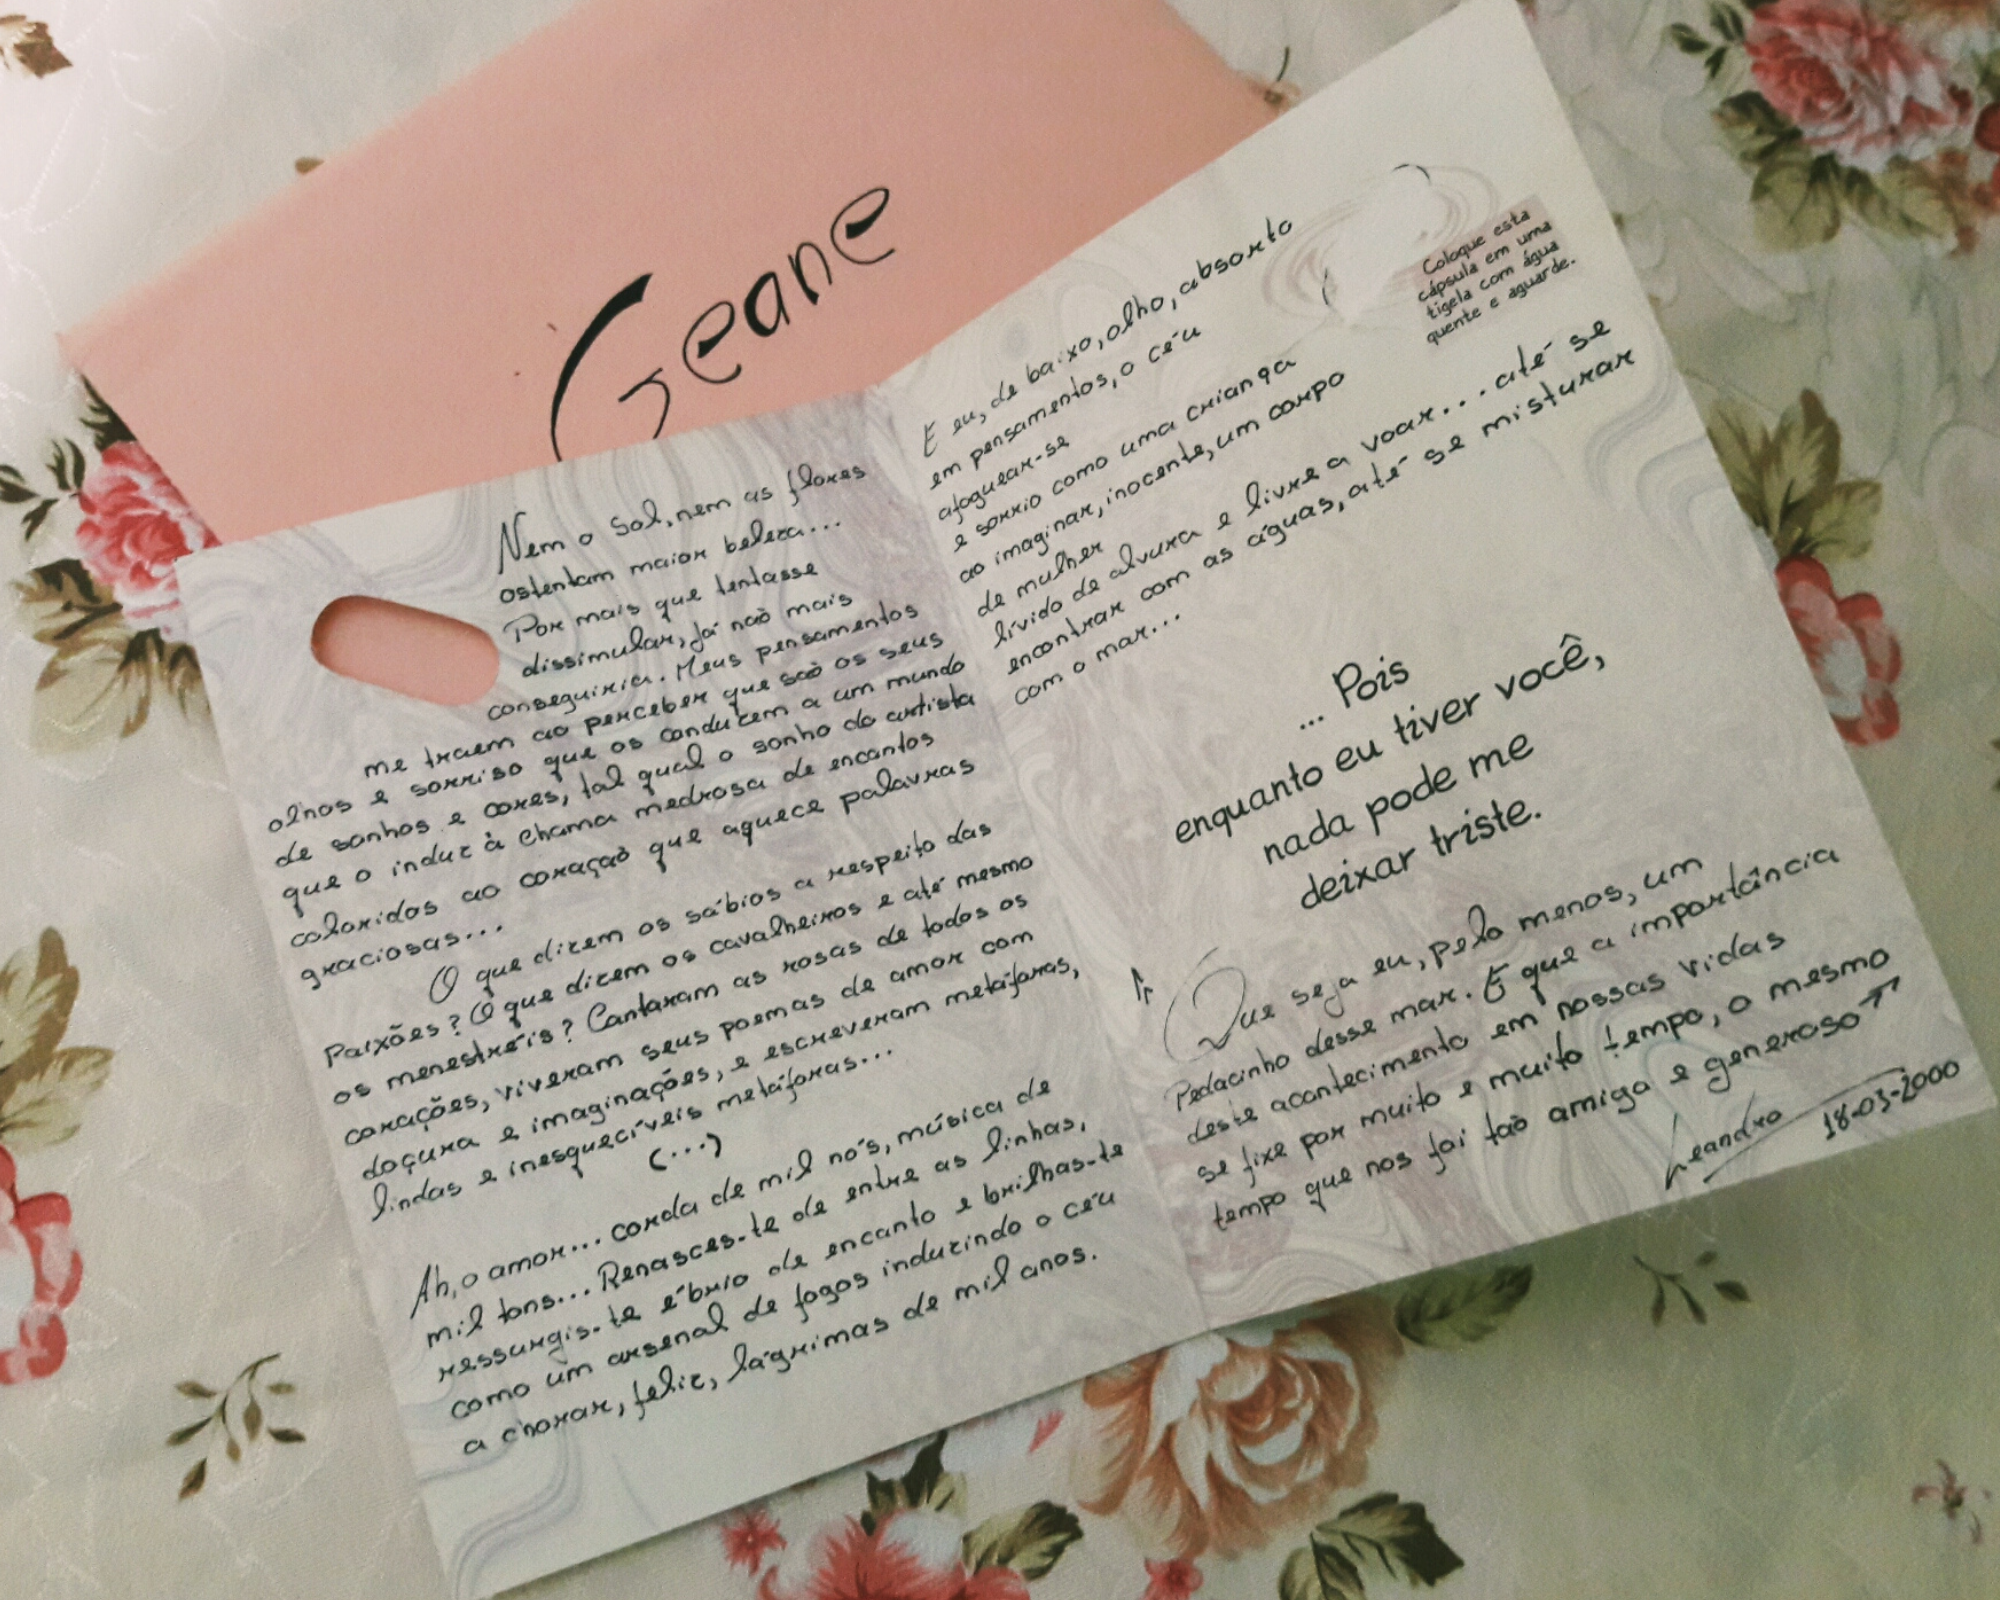 Geane
Nem o Sol, nem as flores
ostentam maior beleza...
Por mais que tentasse
dissimular, já naõ mais
conseguiria. Meus pensamentos
me traem ao perceber que saõ os seus
olhos e sorriso que os conduzem a um mundo
de sonhos e cores, tal qual o sonho do artista
que o induz à chama medrosa de encantos
coloridos ao coraçaõ que aquece palavras
graciosas...
O que dizem os sábios a respeito das
Paixões? O que dizem os cavalheiros e até mesmo
os menestréis? Cantaram as rosas de todos os
corações, viveram seus poemas de amor com
doçura e imaginações, e escreveram metáforas,
lindas e inesquecíveis metáforas...
(...)
Ah, o amor... corda de mil nós, música de
mil tons... Renasces-te de entre as linhas,
ressurgis-te ébrio de encanto e brilhas-te
como um arsenal de fogos induzindo o céu
a chorar, feliz, lágrimas de mil anos.
E eu, de baixo, olho, absorto
em pensamentos, o céu
afoguear-se
e sorrio como uma criança
ao imaginar, inocente, um corpo
de mulher
lívido de alvura e livre a voar... até se
encontrar com as águas, até se misturar
com o mar...
Coloque esta
cápsula em uma
tigela com água
quente e aguarde.
... Pois
enquanto eu tiver você,
nada pode me
deixar triste.
Que seja eu, pelo menos, um
Pedacinho desse mar. E que a importância
deste acontecimento em nossas vidas
se fixe por muito e muito tempo, o mesmo
tempo que nos foi taõ amigo e generoso
Leandro 18-03-2000